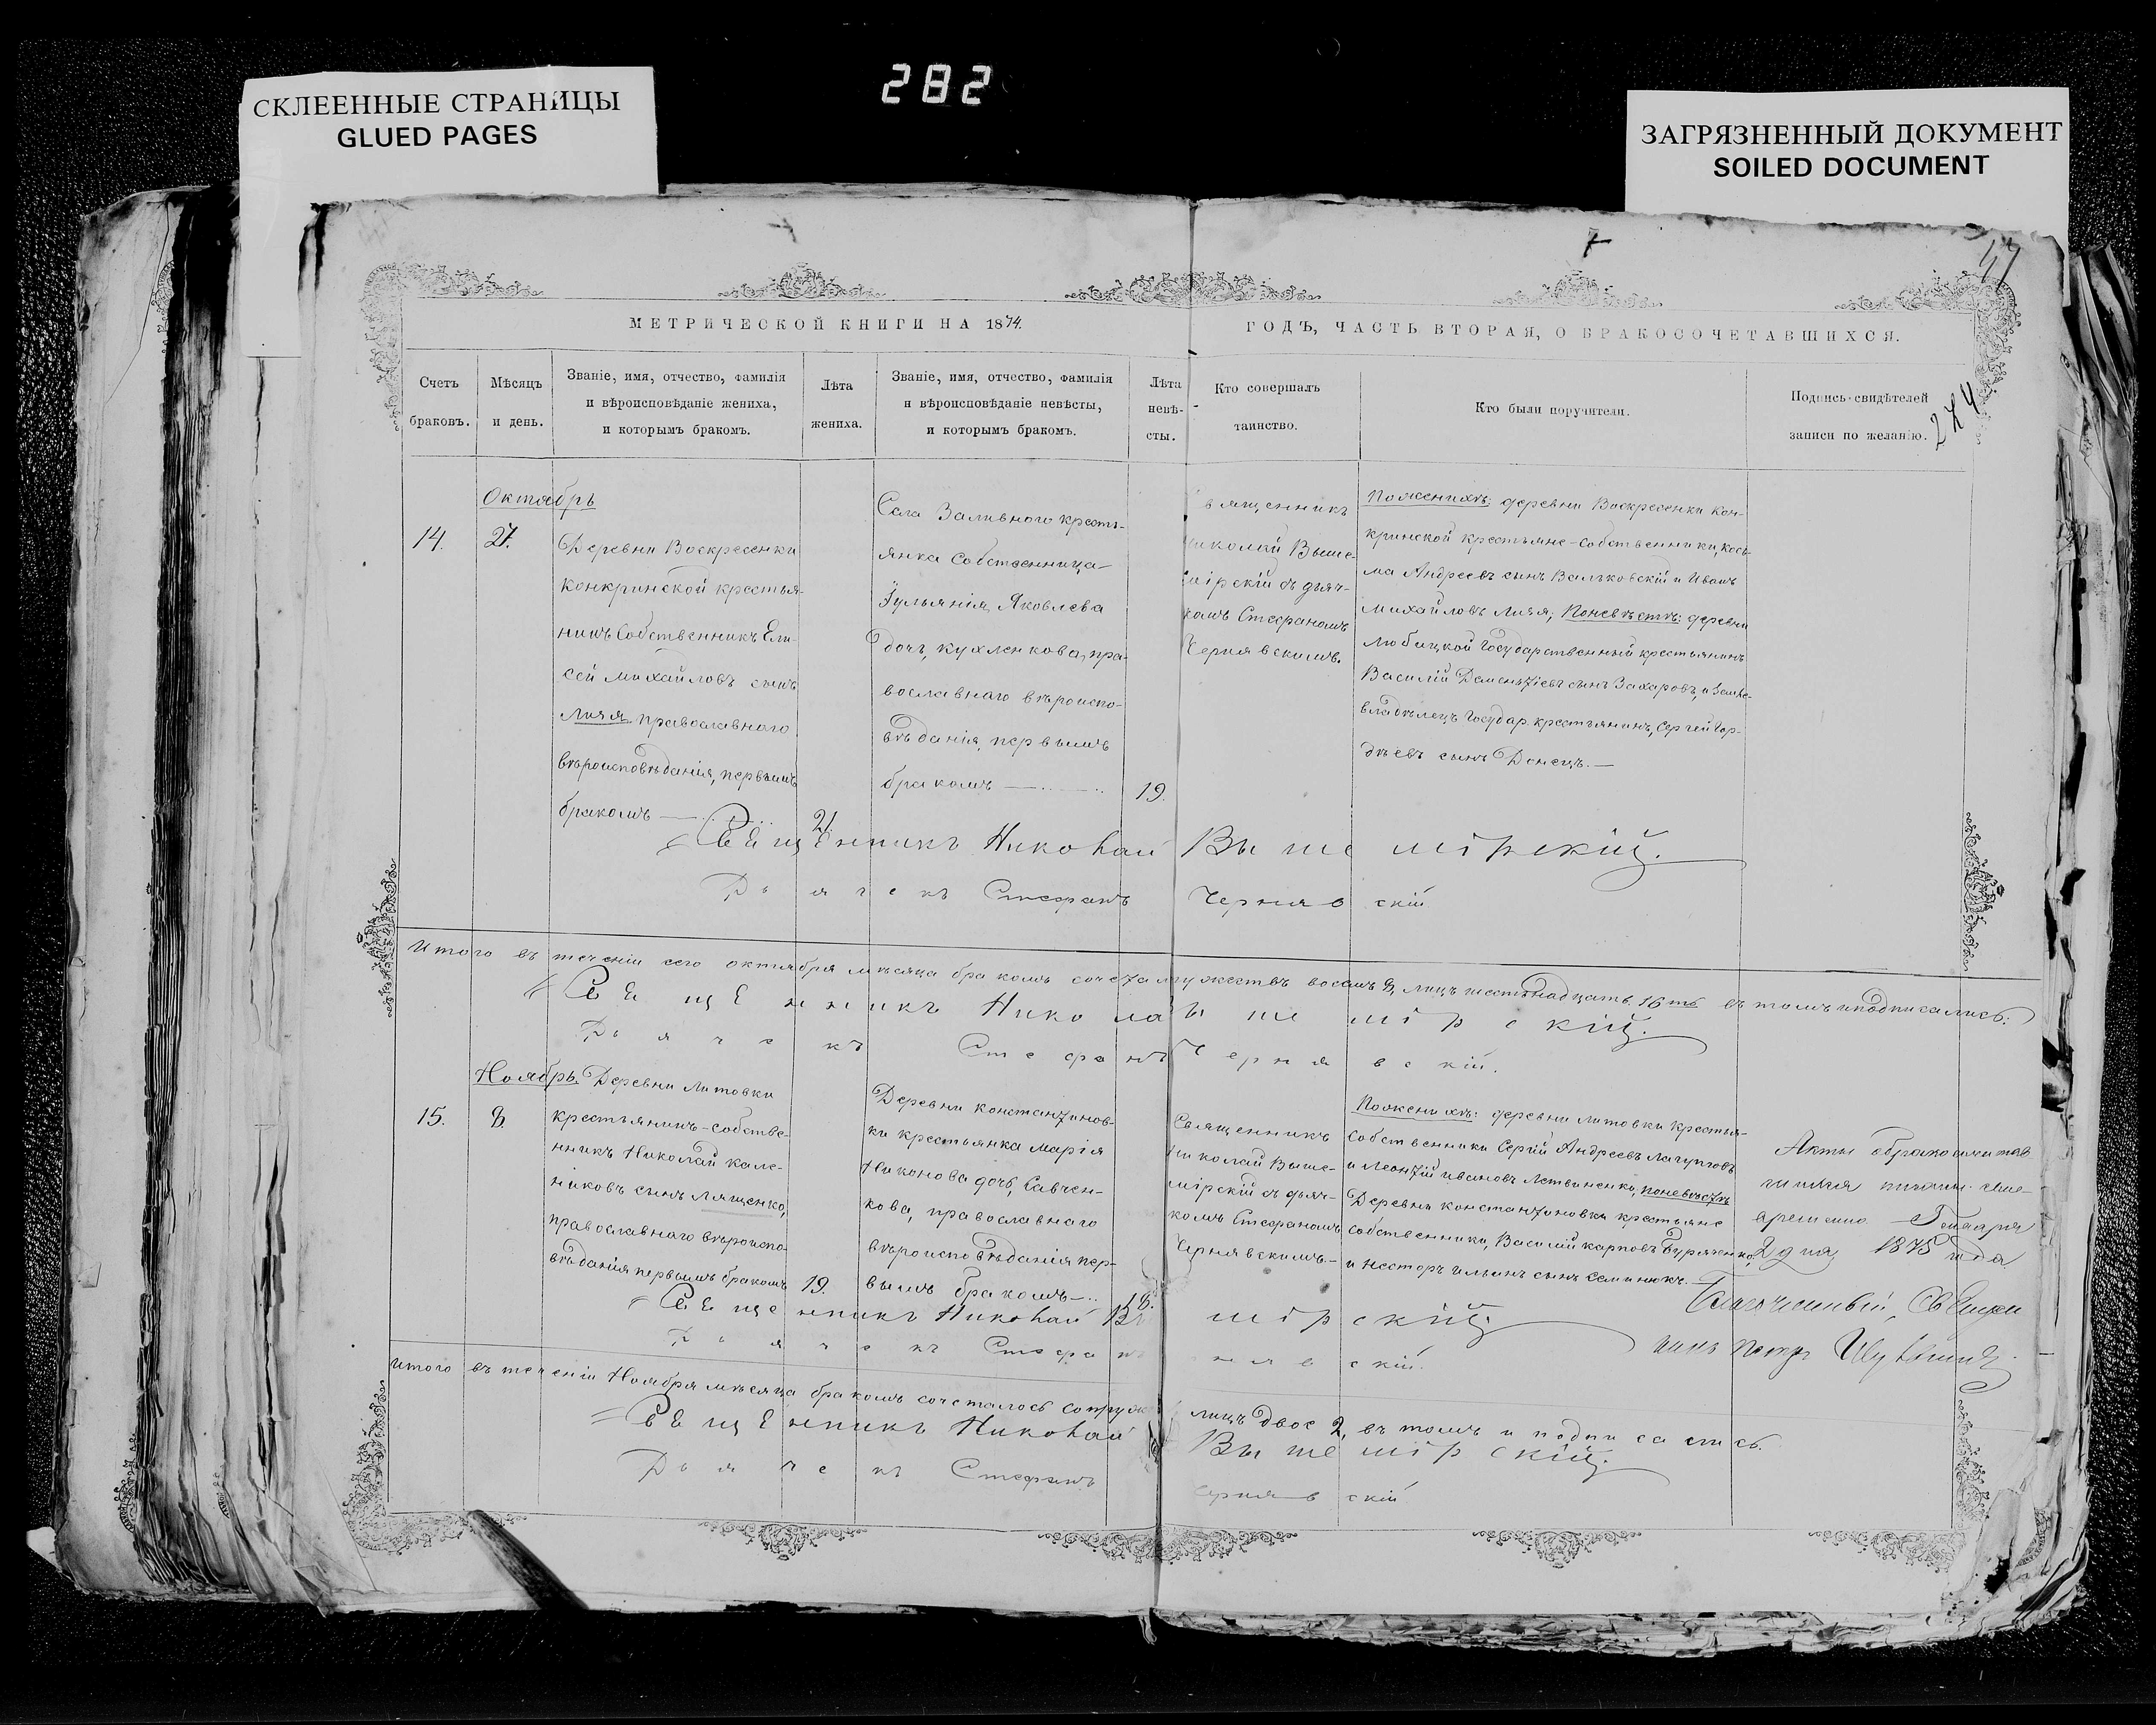 СКЛЕЕННЫЕ СТРАНИЦЫ
GLUED PAGES
282
ЗАГРЯЗНЕННЫЙ ДОКУМЕНТ
SOILED DOCUMENT
МЕТРИЧЕСКОЙ КНИГИ НА 1874.
ГОДЪ, ЧАСТЬ ВТОРАЯ, О БРАКОСОЧЕТАВШИХСЯ.
274
Счетъ
браковъ.
Мѣсяцъ
и день.
Званіе, имя, отчество, фамилія
и вѣроисповѣданіе жениха,
и которымъ бракомъ.
Лѣта
жениха.
Званіе, имя, отчество, фамилія
и вѣроисповѣданіе невѣсты,
и которымъ бракомъ.
Лѣта
невѣ-
сты.
Кто совершалъ
таинство.
Кто были поручители.
Подпись свидѣтелей
записи по желанію.
Октябрь
14.
27.
Деревни Воскресенки
Конкринской крестья-
нинъ Собственникъ Ели-
сей Михайловъ сынъ
Лизя, православнаго
вѣроисповѣданія, первымъ
бракомъ
21
Села Заливнаго кресть-
янка Собственница
Іульянія Яковлева
дочь, Кухленкова, пра-
вославнаго вѣроиспо-
вѣданія, первымъ
бракомъ
19.
Священникъ
Николай Выше-
мірскій съ дьяч-
комъ Стефаномъ
Чернявскимъ.
По женихѣ: деревни Воскресенки Кон-
кринской крестьяне-собственники, Кось-
ма Андреевъ сынъ Вальковскій и Иванъ
Михайловъ Лизя; По невѣстѣ: деревни
Любицкой Государственный крестьянинъ
Василій Дементіевъ сынъ Захаровъ, и Земле-
владѣлецъ Государ. крестьянинъ, Сергій Гор-
дѣевъ сынъ Донецъ.
Священникъ Николай Вышемірскій.
Дьячекъ Стефанъ Чернявскій
Итого въ теченіи сего октября мѣсяца бракомъ сочета мужествъ восемь 8, лицъ шестьнадцать 16ть въ томъ и подписались:
Священникъ Николай Вышемірскій.
Дьячекъ Стефанъ Чернявскій.
Ноябрь
15.
8.
Деревни Литовки
крестьянинъ-собстве-
нникъ Николай Кале-
никовъ сынъ Лященко,
православнаго вѣроиспо-
вѣданія первымъ бракомъ
19.
Деревни Константинов-
ки крестьянка Марія
Никонова дочь, Савчен-
кова, православнаго
вѣроисповѣданія пер-
вымъ бракомъ
18.
Священникъ
Николай Выше-
мірскій съ дьяч-
комъ Стефаномъ
Чернявскимъ
По женихѣ: деревни Литовки крестья-
Собственники Сергій Андреевъ
и Леонтій Ивановъ Литвиненко, по невѣстѣ
Деревни Константиновки крестьяне
собственники, Василій Карповъ Буряченко,
и Несторъ Ильинъ сынъ Семинюкъ.
Акты
Генваря
2 дня 1875 года
Благочинный, Священ
никъ Петръ
Священникъ Николай Вы мірскій
Дьячекъ Стефанъ нявскій.
Итого въ теченіи Ноября мѣсяца бракомъ сочеталось супруж
лицъ двое 2, въ томъ и подписались.
Священникъ Николай Вышемірскій.
Дьячекъ Стефанъ Чернявскій